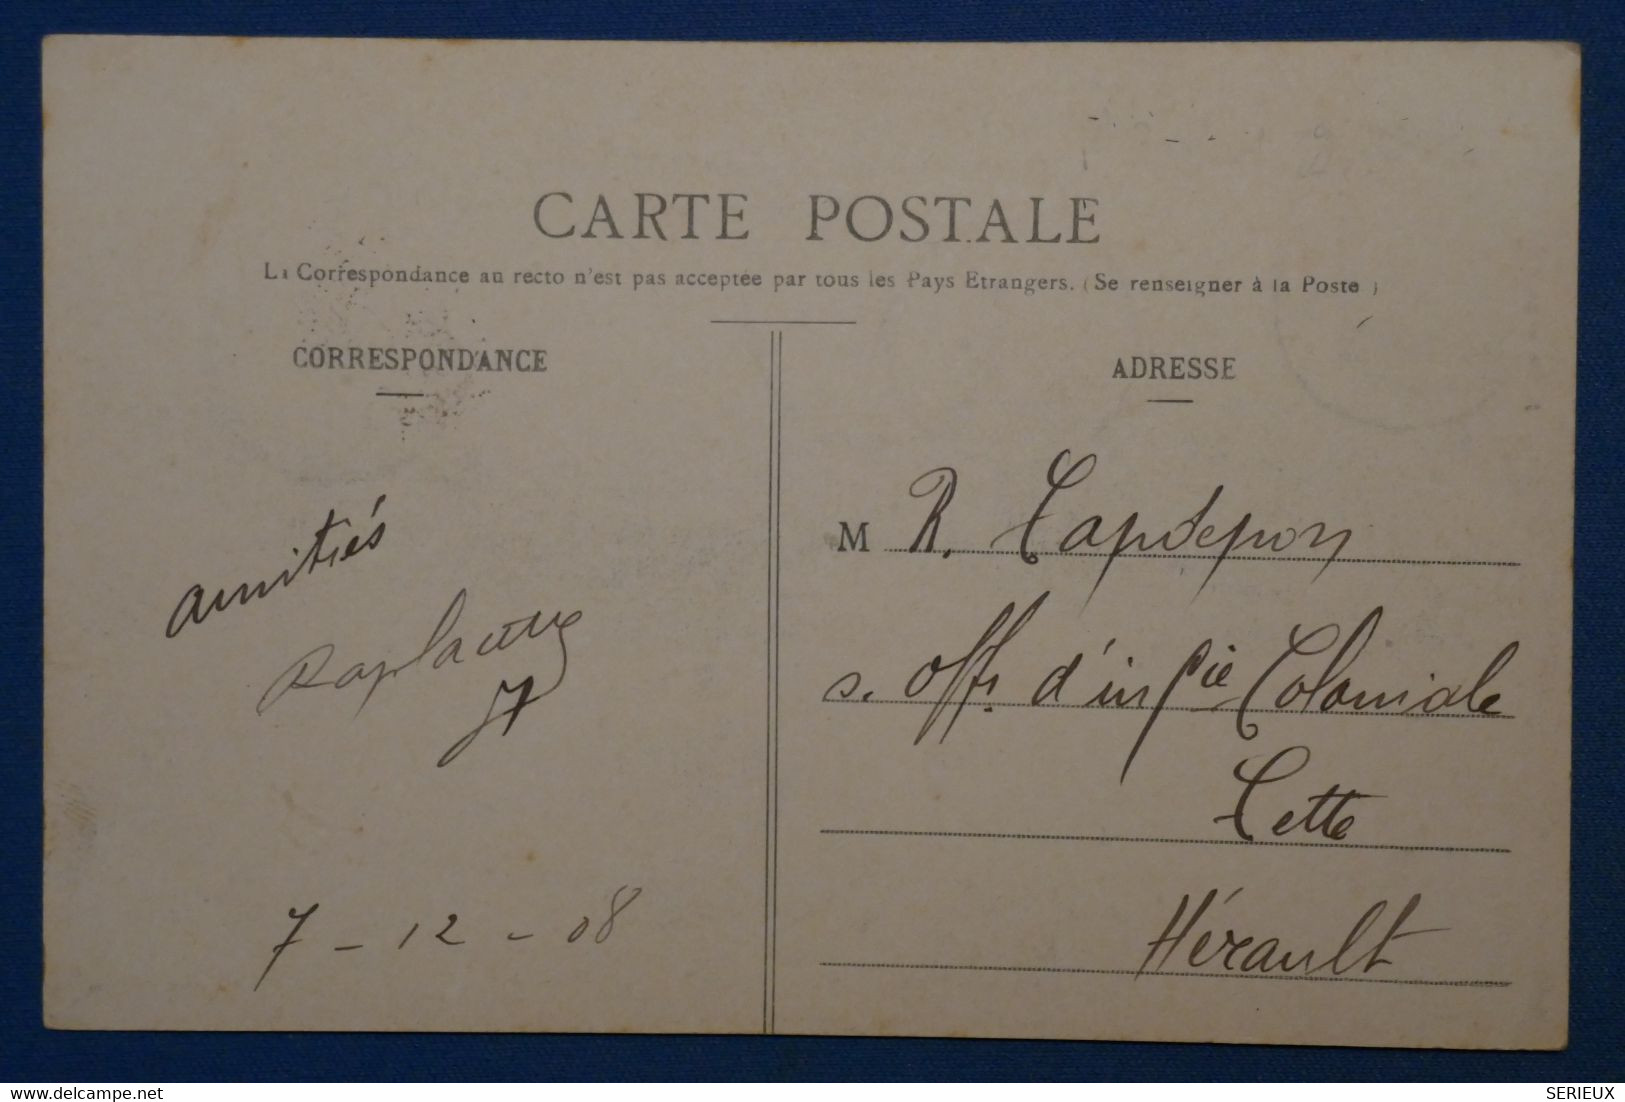 CARTE POSTALE
La Correspondance au recto n'est pas acceptée par tous les Pays Etrangers. (Se renseigner à la Poste)
CORRESPONDANCE
amitiés
7 - 12 - 08
ADRESSE
M R. Capdepon
s. Off. d'inf cie Coloniale
Cette
Hérault
www.delcampe.net
SERIEUX